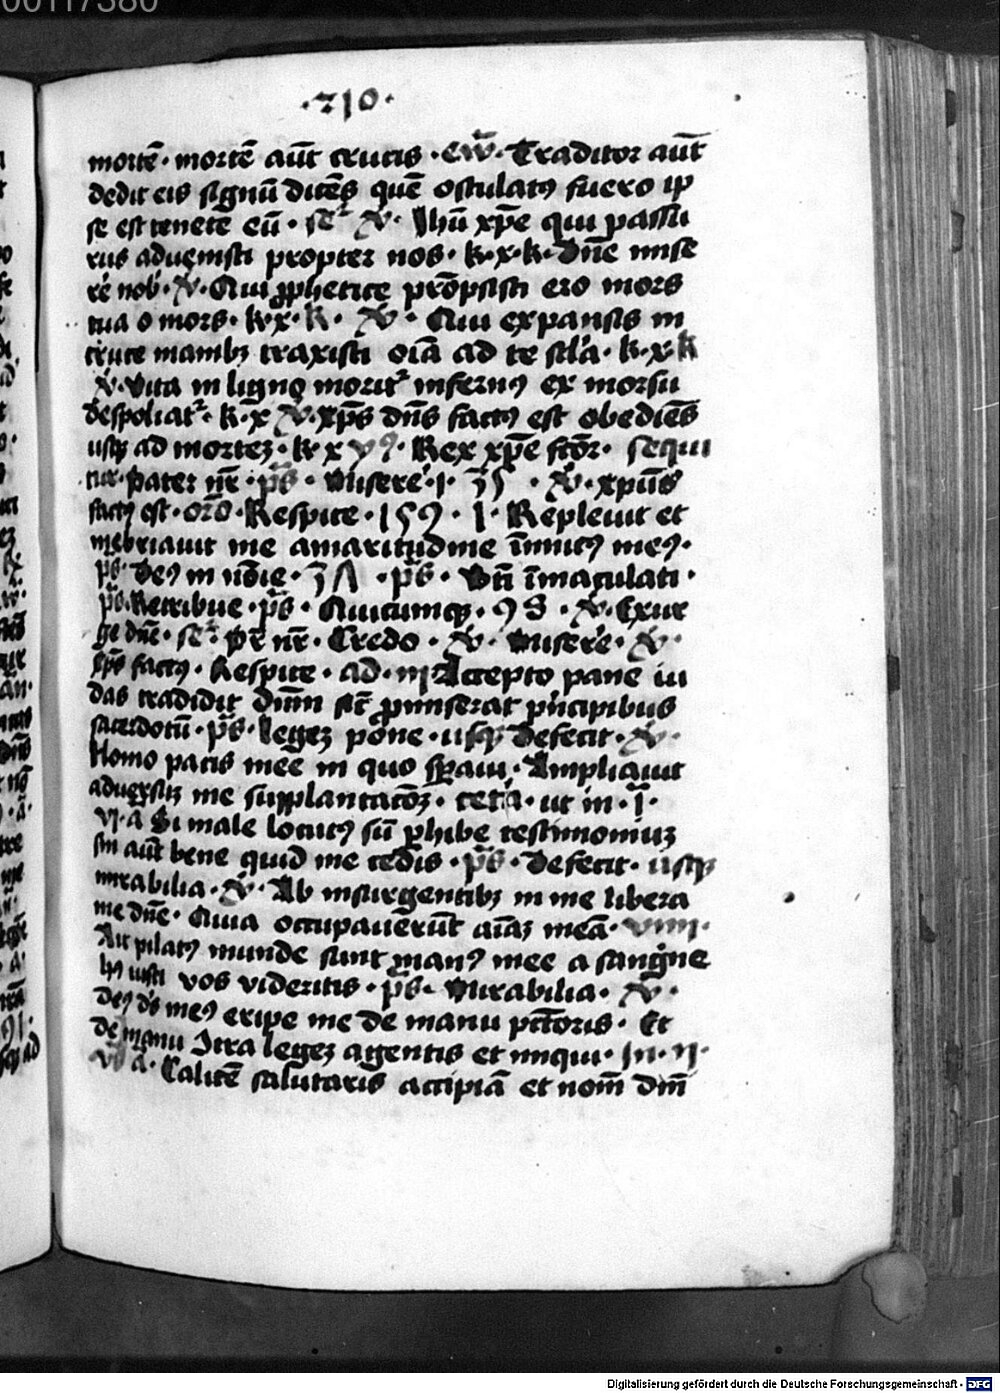 00117380
·210·
mortē· mortē aūt crucis ·Ew̄· Traditor aūt
dedit eis signū dicēs quē osculatꝰ fuero ip
se est tenete eū · se᷑ ꝟ· Jhū xp̄e qui passū
rus advenisti propter nos · k·x·k· dn̄e mise
re᷑ nob᷑· ꝟ· Qui ꝓphetice prōpsisti ero mors
tua o mors· k·x· k· ꝟ· Qui expansis in
cruce manibꝫ traxisti oīa ad te sc̄la · k·x·k
ꝟ· Vita in ligno morit᷑ infernꝰ ex morsu
despoliat᷑· k·x ꝟ· xp̄s dn̄s factꝰ est obediēs
usqꝫ ad mortez· k x yꝰ· Rex xp̄e fc̄or· sequi
tur· Pater nr̄ · p̄s · Misere᷑·
factꝰ est· orō· Respice · 159· 1· Replevit et
inebriavit me amaritudine īimicꝰ meꝰ·
p̄s· Deꝰ in noīe · p̄s · Bt̄i īmaculati ·
p̄s· Retribue · p̄s · Quicumqꝫ · 98 · ꝟ· Exur
ge dn̄e· se᷑ pr̄ nr̄· Credo · ꝟ· Misere᷑ · ꝟ·
xp̄s factꝰ· Respice · ad · iij· Accepto pane iu
das tradidit dn̄m sic̄ ꝓmiserat pͥncipibus
sacerdotū· p̄s· legez pone· usqꝫ Defecit· ꝟ·
Homo pacis mee in quo sꝑavi· Ampliavit
adversuz me supplantacōꝫ· cet᷑a· ut in · j·
vj· a Si male locutꝰ sū ꝑhibe testimoniuz
sin aūt bene quid me cedis · p̄s · Defecit· usqꝫ
mirabilia · ꝟ· Ab insurgentibꝫ in me libera
me dn̄e· Quia occupavērūt aīaz meā· viiij·
Ait pilatꝰ munde sunt manꝰ mee a sangͥne
hꝰ iusti vos videritis · p̄s· Mirabilia· ꝟ·
deꝰ ds̄ meꝰ eripe me de manu pcc̄oris· Et
de manu 9tra legez agentis et iniqui· Jn· ij·
vs̄ a᷑· Calicē salutaris accipiā et nom̄ dn̄i
Digitalisierung gefördert durch die Deutsche Forschungsgemeinschaft - DFG